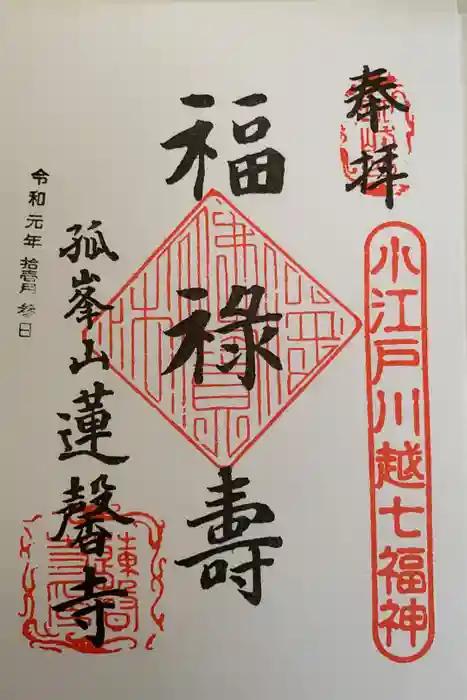 奉拝
小江戸川越七福神
福禄壽
孤峯山蓮馨寺
令和元年 拾壱月 参日